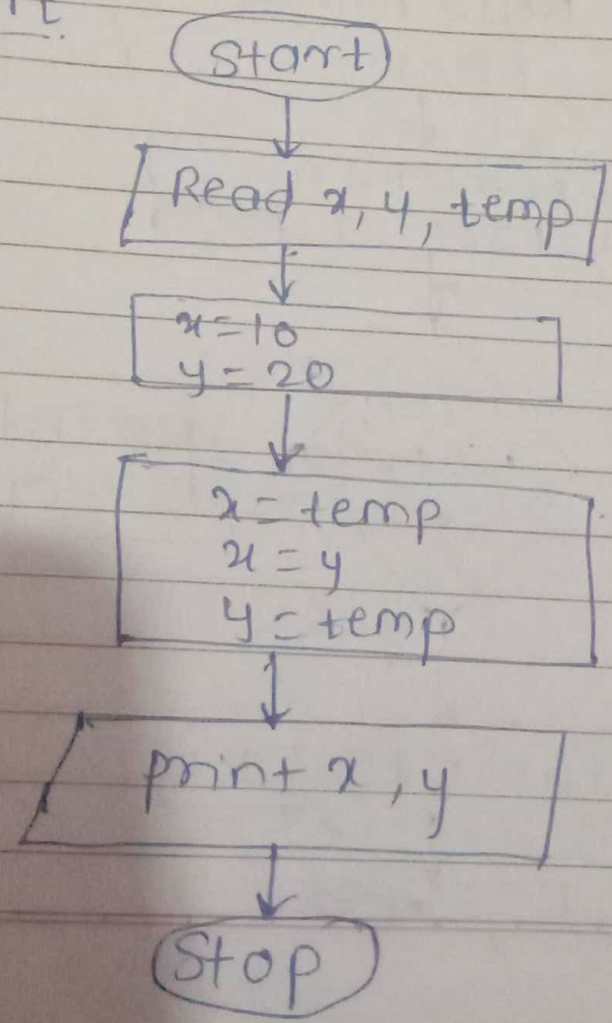 Start
Read x, y, temp
x=10
y=20
x=temp
x=y
y=temp
print x, y
Stop